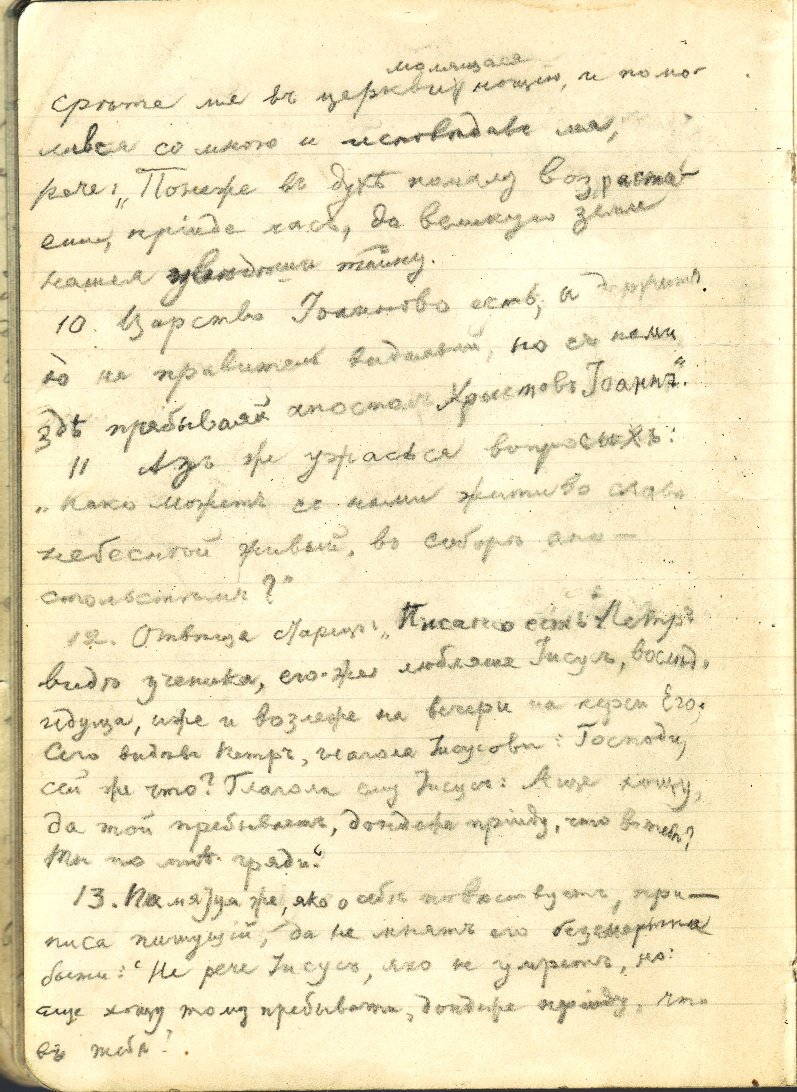 молящася
срѣте мя въ церкви нощію, и помо-
лився со мною и исповѣдавъ мя,
рече: „Понеже въ дусѣ помалу возраста-
еши, пріиде часъ, да великую земли
нашея увѣдѣши тайну.
10. Царство Іоанново есть, и держитъ
ю не правитель видимый, но съ нами
здѣ пребываяй апостолъ Христовъ Іоаннъ".
11 Азъ же ужасъся вопросихъ:
„Како можетъ со нами жити во славѣ
небесной живый, въ соборѣ апо-
стольстѣмъ?"
12. Отвѣща старецъ: „Писано есть: Петръ
видѣ ученика, его-же любляше Іисусъ, во слѣдъ
идуща, иже и возлеже на вечери на перси Его;
Сего видѣвъ Петръ, глагола Іисусови: Господи,
сей же что? Глагола ему Іисусъ: Аще хощу,
да той пребываетъ, дондеже пріиду, что къ тебѣ?
Ты по мнѣ гряди."
13. Памятуя же, яко о себѣ повѣствуетъ, при-
писа пишущій, да не мнятъ его безсмертна
быти: "Не рече Іисусъ, яко не умретъ, но:
аще хощу тому пребывати, дондеже пріиду, что
къ тебѣ?